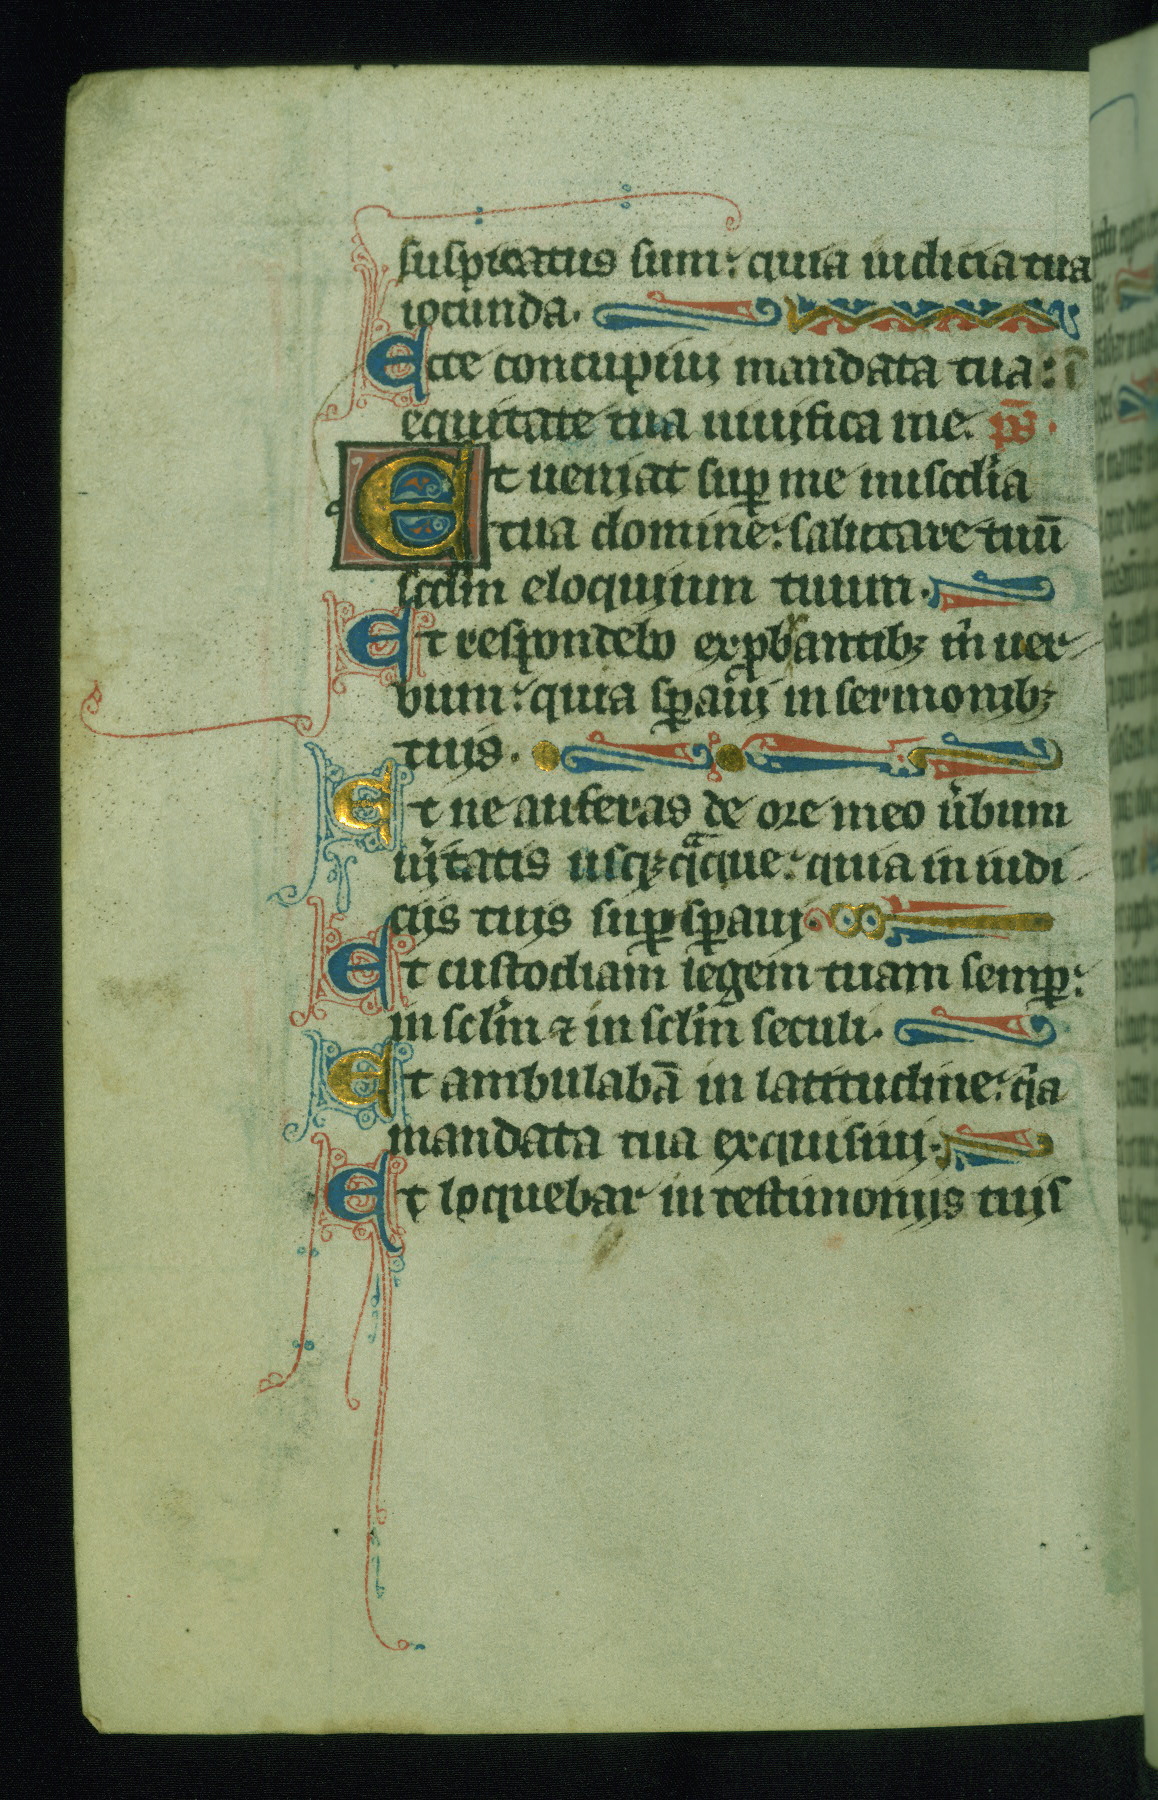 suspicatus sum: quia iudicia tua
iocunda.
Ecce concupiui mandata tua: i
equitate tua uiuifica me. ps̄.
Et ueniat sup̲ me misc̄dia
tua domine: salutare tuū
sc̄dm eloquium tuum.
Et respondebo exp̲bantibꝫ m̄ uer
bum: quia sp̲aui in sermonibꝫ
tuis.
Et ne auferas de ore meo ubum
uitatis usqꝫqᵃque: quia in iudi
ciis tuis sup̲sp̲aui.
Et custodiam legem tuam semp̲:
in sclm ⁊ in sclm seculi.
Et ambulabā in latitudine: qa
mandata tua exquisiui.
Et loquebar in testimoniis tuis